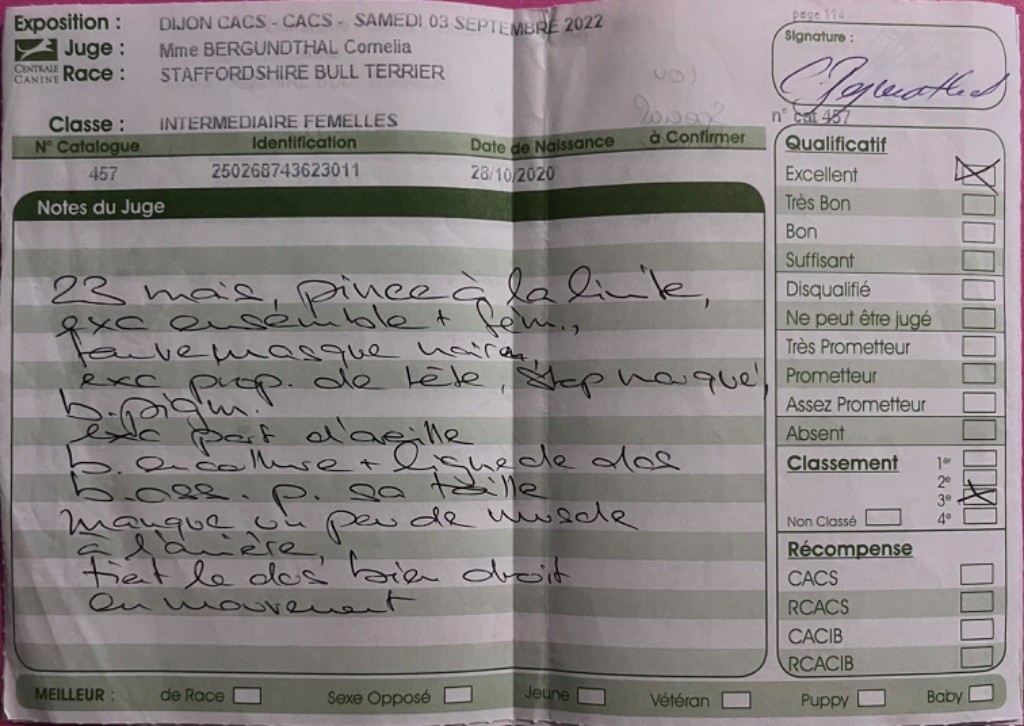 Exposition : DIJON CACS - CACS - SAMEDI 03 SEPTEMBRE 2022
page 114
Signature :
CENTRALE CANINE
Juge : Mme BERGUNDTHAL Cornelia
Race : STAFFORDSHIRE BULL TERRIER
Classe : INTERMEDIAIRE FEMELLES
n° cat 457
N° Catalogue Identification Date de Naissance à Confirmer
457 250268743623011 28/10/2020
Notes du Juge
23 mois, pince à la limite,
exc ensemble + fém.,
fauve masque noire,
exc prop. de tête, stop marqué,
b. pigm.
exc port d'oreille
b. encollure + ligne de dos
b. oss. p. sa taille
manque un peu de muscle
à l'arrière,
tient le dos bien droit
en mouvement
Qualificatif
Excellent
Très Bon
Bon
Suffisant
Disqualifié
Ne peut être jugé
Très Prometteur
Prometteur
Assez Prometteur
Absent
Classement 1er
2e
3e
Non Classé 4e
Récompense
CACS
RCACS
CACIB
RCACIB
MEILLEUR : de Race Sexe Opposé Jeune Vétéran Puppy Baby